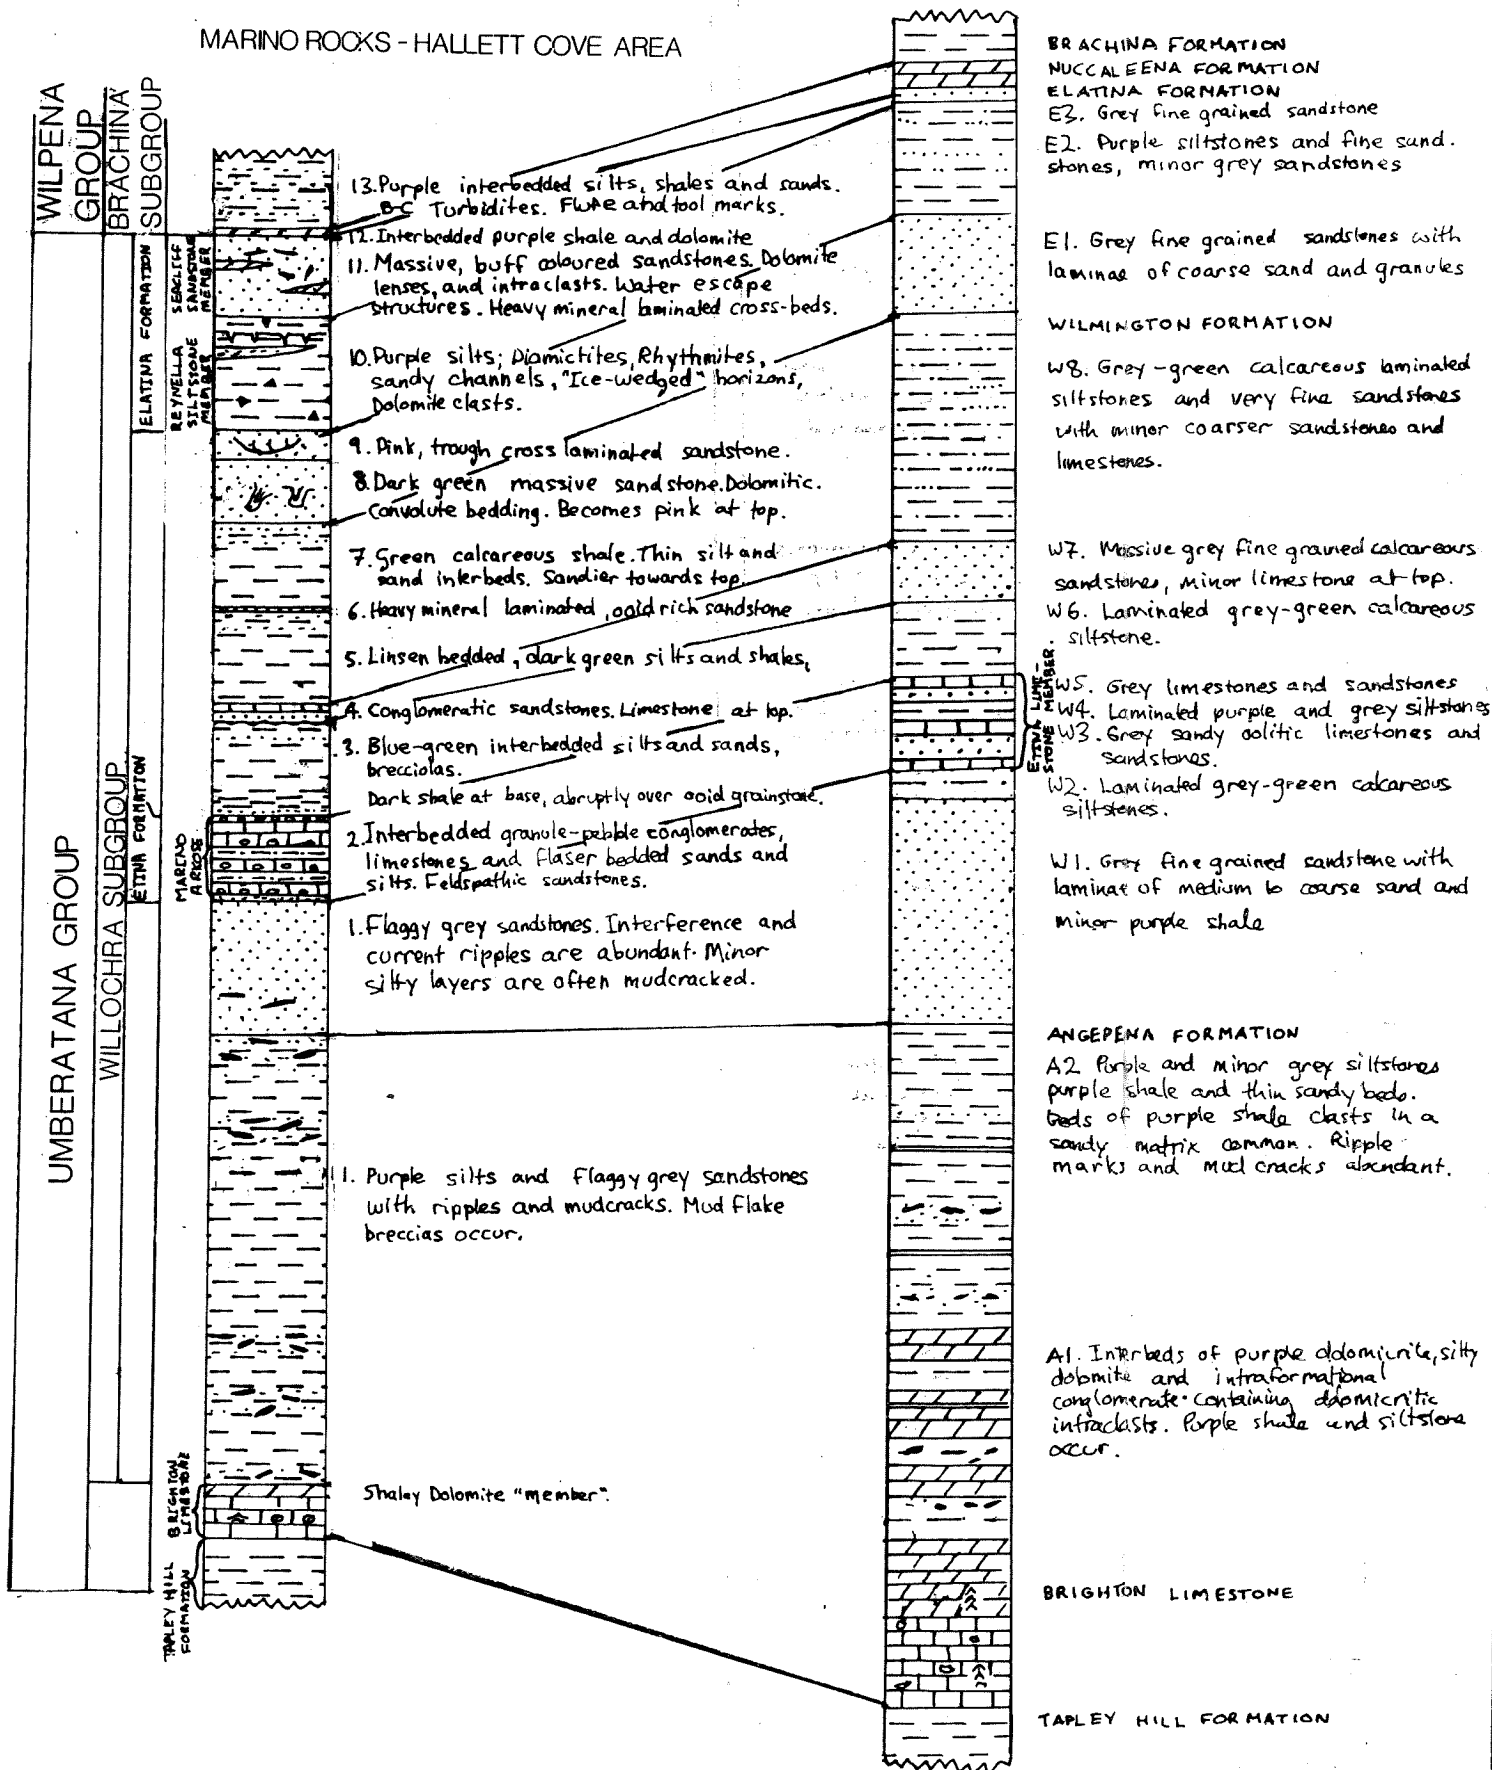 MARINO ROCKS - HALLETT COVE AREA
WILPENA
GROUP
BRACHINA
SUBGROUP
UMBERATANA GROUP
WILLOCHRA SUBGROUP
ELATINA FORMATION
SEACLIFF
SANDSTONE
MEMBER
REYNELLA
SILTSTONE
MEMBER
ETINA FORMATION
MARINO
ARKOSE
BRIGHTON
LIMESTONE
TAPLEY HILL
FORMATION
13. Purple interbedded silts, shales and sands.
B-C Turbidites. Flute and tool marks.
12. Interbedded purple shale and dolomite
11. Massive, buff coloured sandstones. Dolomite
lenses, and intraclasts. Water escape
structures. Heavy mineral laminated cross-beds.
10. Purple silts; Diamictites, Rhythmites,
sandy channels, "Ice-wedged" horizons,
Dolomite clasts.
9. Pink, trough cross laminated sandstone.
8. Dark green massive sandstone. Dolomitic.
Convolute bedding. Becomes pink at top.
7. Green calcareous shale. Thin silt and
sand interbeds. Sandier towards top.
6. Heavy mineral laminated, ooid rich sandstone
5. Linsen bedded, dark green silts and shales,
4. Conglomeratic sandstones. Limestone at top.
3. Blue-green interbedded silts and sands,
brecciolas.
Dark shale at base, abruptly over ooid grainstone.
2. Interbedded granule-pebble conglomerates,
limestones and flaser bedded sands and
silts. Feldspathic sandstones.
1. Flaggy grey sandstones. Interference and
current ripples are abundant. Minor
silty layers are often mudcracked.
1. Purple silts and Flaggy grey sandstones
with ripples and mudcracks. Mud flake
breccias occur.
Shaley Dolomite "member".
BRACHINA FORMATION
NUCCALEENA FORMATION
ELATINA FORMATION
E3. Grey fine grained sandstone
E2. Purple siltstones and fine sand.
stones, minor grey sandstones
E1. Grey fine grained sandstones with
laminae of coarse sand and granules
WILMINGTON FORMATION
W8. Grey-green calcareous laminated
siltstones and very fine sandstones
with minor coarser sandstones and
limestones.
W7. Massive grey fine grained calcareous
sandstones, minor limestone at top.
W6. Laminated grey-green calcareous
siltstone.
ETINA LIME-
STONE MEMBER
W5. Grey limestones and sandstones
W4. Laminated purple and grey siltstones
W3. Grey sandy oolitic limestones and
sandstones.
W2. Laminated grey-green calcareous
siltstones.
W1. Grey fine grained sandstone with
laminae of medium to coarse sand and
minor purple shale
ANGEPENA FORMATION
A2 Purple and minor grey siltstones
purple shale and thin sandy beds.
Beds of purple shale clasts in a
sandy matrix common. Ripple
marks and mud cracks abundant.
A1. Interbeds of purple dolomicrite, silty
dolomite and intraformational
conglomerate containing dolomicritic
intraclasts. Purple shale and siltstone
occur.
BRIGHTON LIMESTONE
TAPLEY HILL FORMATION